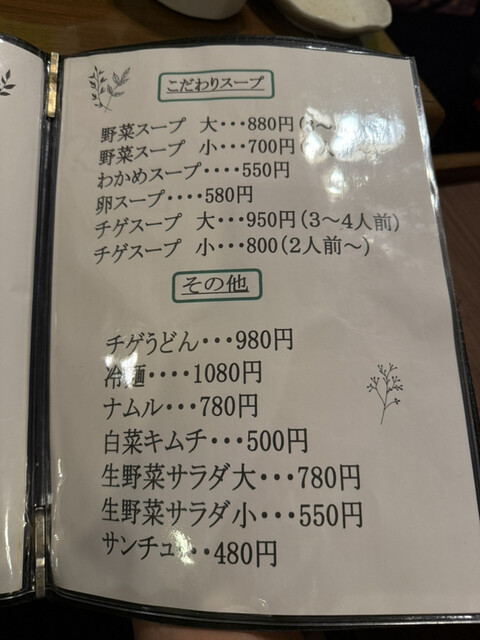 こだわりスープ
野菜スープ 大・・・880円(3〜
野菜スープ 小・・・700円(
わかめスープ・・・・550円
卵スープ・・・・580円
チゲスープ 大・・・950円(3〜4人前)
チゲスープ 小・・・800(2人前〜)
その他
チゲうどん・・・980円
冷麺・・・・1080円
ナムル・・・780円
白菜キムチ・・・500円
生野菜サラダ大・・・780円
生野菜サラダ小・・・550円
サンチュ・・・480円